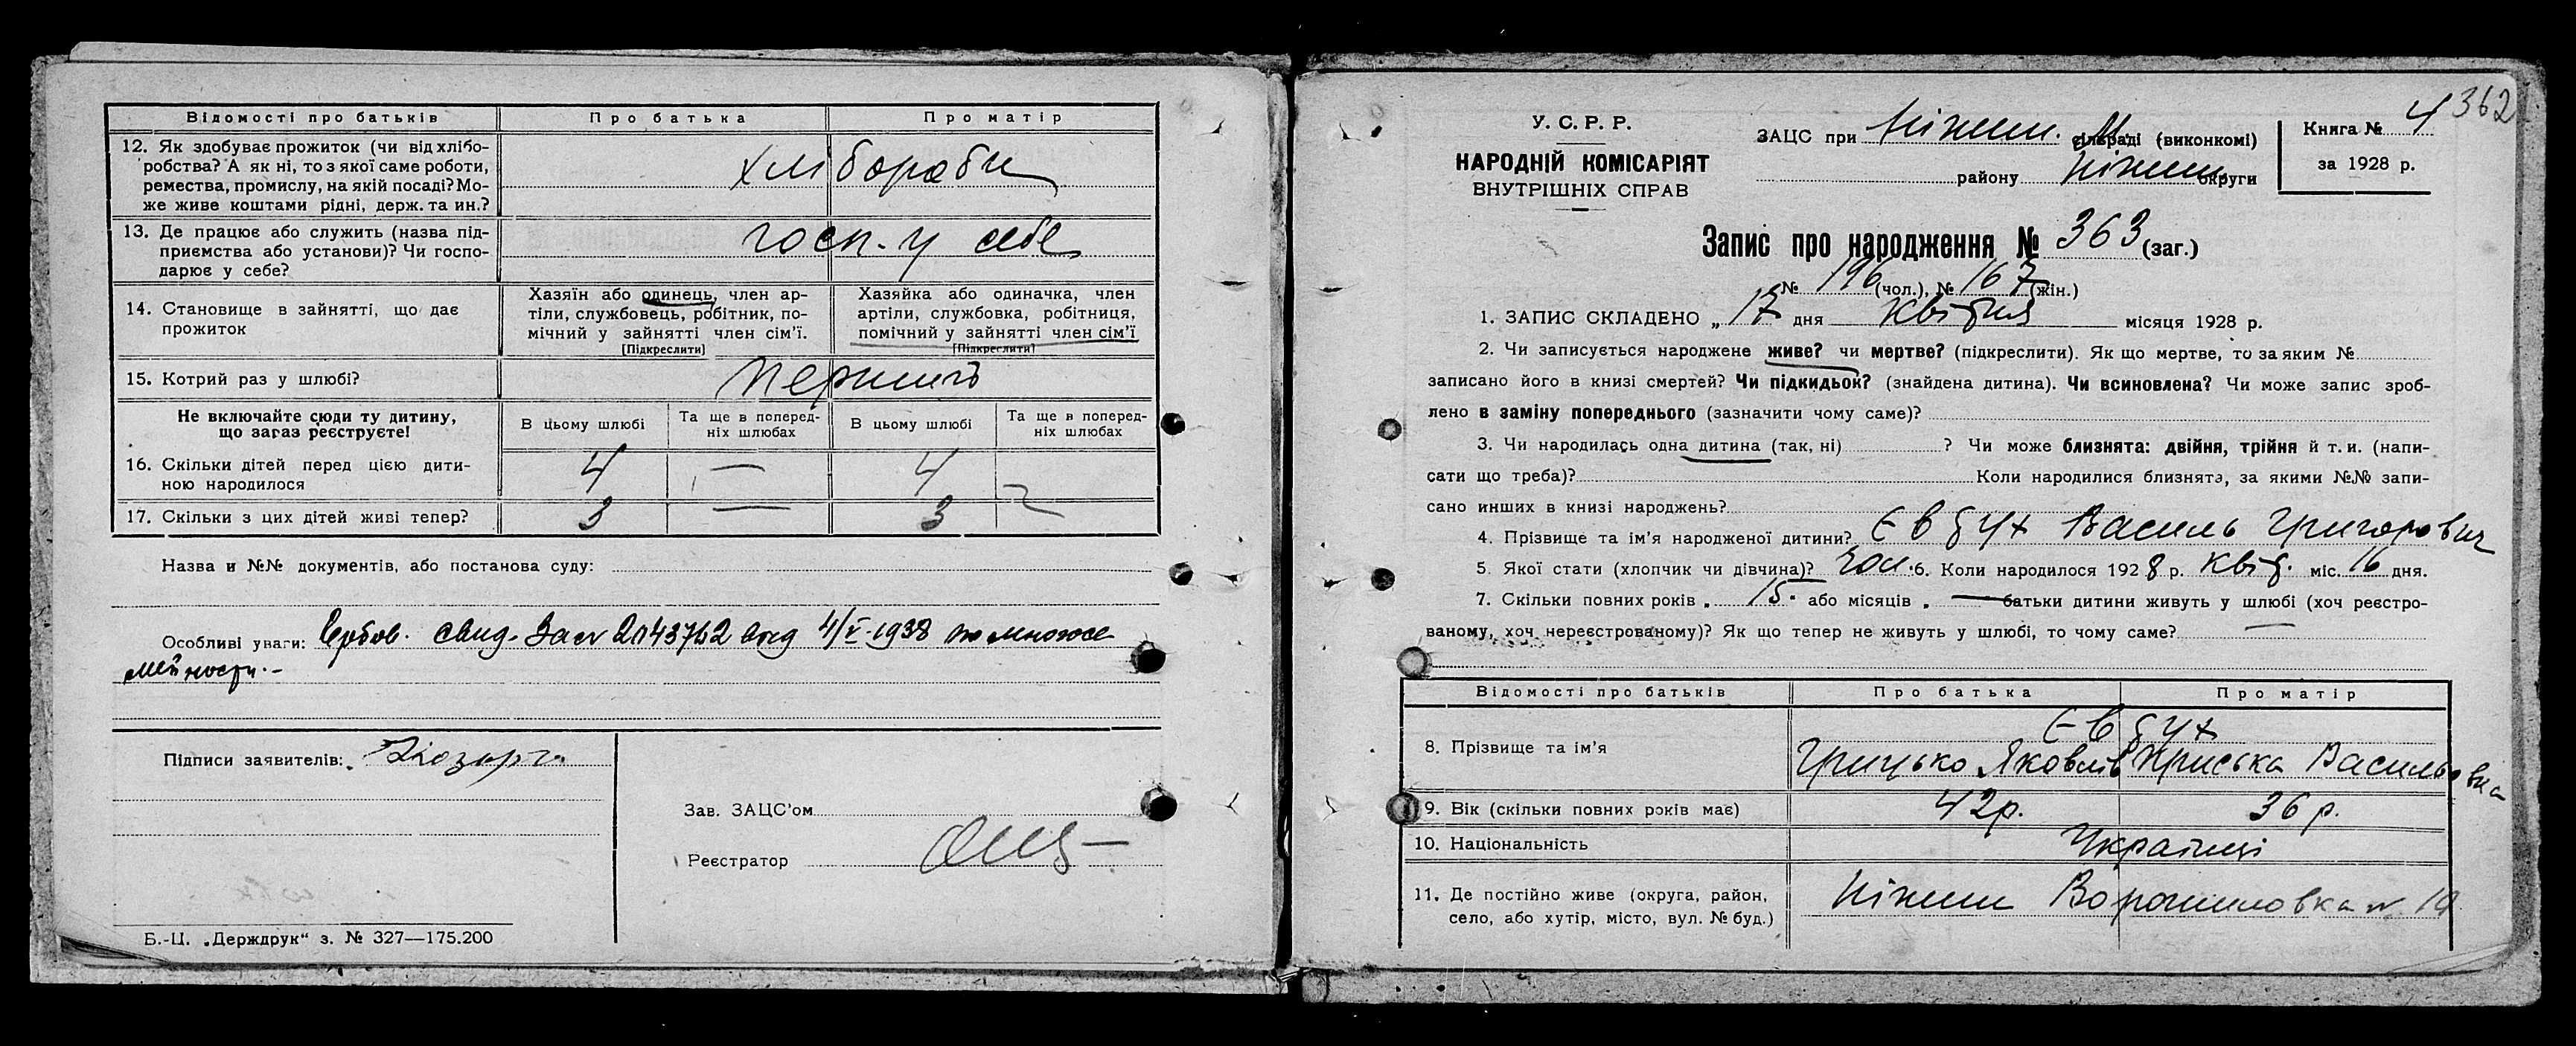 Відомості про батьків Про батька Про матір
12. Як здобуває прожиток (чи від хлібо-
робства? А як ні, то з якої саме роботи,
ремества, промислу, на якій посаді? Мо-
же живе коштами рідні, держ. та ин.?
хлібороби
13. Де працює або служить (назва під-
приємства або установи)? Чи госпо-
дарює у себе?
госп. у себе
14. Становище в зайнятті, що дає
прожиток
Хазяїн або одинець, член ар-
тіли, службовець, робітник, по-
мічний у зайнятті член сім'ї.
[Підкреслити]
Хазяйка або одиначка, член
артіли, службовка, робітниця,
помічний у зайнятті член сім'ї
[Підкреслити]
15. Котрий раз у шлюбі?
Не включайте сюди ту дитину,
що зараз реєструєте!
В цьому шлюбі
Та ще в поперед-
ніх шлюбах
В цьому шлюбі
Та ще в поперед-
ніх шлюбах
16. Скільки дітей перед цією дити-
ною народилося
4 — 4
17. Скільки з цих дітей живі тепер? 3 — 3
Назва и №№ документів, або постанова суду:
Особливі уваги: 4/V-1938 по многосе
мейности.-
Підписи заявителів:
Зав. ЗАЦС'ом
Реєстратор
Б.-Ц. „Держдрук" з. № 327—175.200
362
У. С. Р. Р.
НАРОДНІЙ КОМІСАРІЯТ
ВНУТРІШНІХ СПРАВ
ЗАЦС при Ніжин. сільраді (виконкомі)
району Ніжин. округи
Книга № 4
за 1928 р.
Запис про народження № 363 (заг.)
№ 196 (чол.), № 167 (жін.)
1. ЗАПИС СКЛАДЕНО „ 17 дня Квітня місяця 1928 р.
2. Чи записується народжене живе? чи мертве? (підкреслити). Як що мертве, то за яким №
записано його в книзі смертей? Чи підкидьок? (знайдена дитина). Чи всиновлена? Чи може запис зроб-
лено в заміну попереднього (зазначити чому саме)?
3. Чи народилась одна дитина (так, ні) ? Чи може близнята: двійня, трійня й т. и. (напи-
сати що треба)? Коли народилися близнята, за якими №№ запи-
сано инших в книзі народжень?
4. Прізвище та ім'я народженої дитини? Євтух Василь Григорович
5. Якої стати (хлопчик чи дівчина)? чол. 6. Коли народилося 1928 р. Квіт. міс. 16 дня.
7. Скільки повних років „ 15 " або місяців „ — батьки дитини живуть у шлюбі (хоч реєстро-
ваному, хоч нереєстрованому)? Як що тепер не живуть у шлюбі, то чому саме? —
Відомості про батьків Про батька Про матір
8. Прізвище та ім'я
Євтух
Грицько Яковлів Приська Васильовка
9. Вік (скільки повних років має) 42р. 36р.
10. Національність Українці
11. Де постійно живе (округа, район,
село, або хутір, місто, вул. № буд.)
Ніжин Ворошиловка №